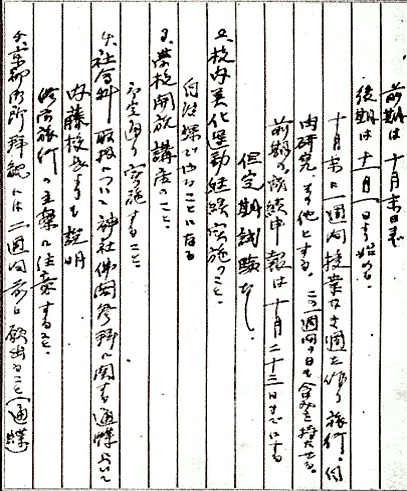 前期は十月末日まで
後期は十一月一日より始める。
十月末に一週間授業なき週を作り旅行、
内研究、その他とする。この一週間の日を含みを持たせる。
前期の成績申報は十月二十三日までにする
但定期試験なし。
2、校内美化運動継続実施のこと。
になる
3、学校開放講座のこと、
予定通り実施すること
4、社会科取扱について神社佛閣参拝に関する通牒について
内藤校長より説明
修学旅行の立案に注意すること。
5、京都御所拝観には二週間前に願出ること（通牒）